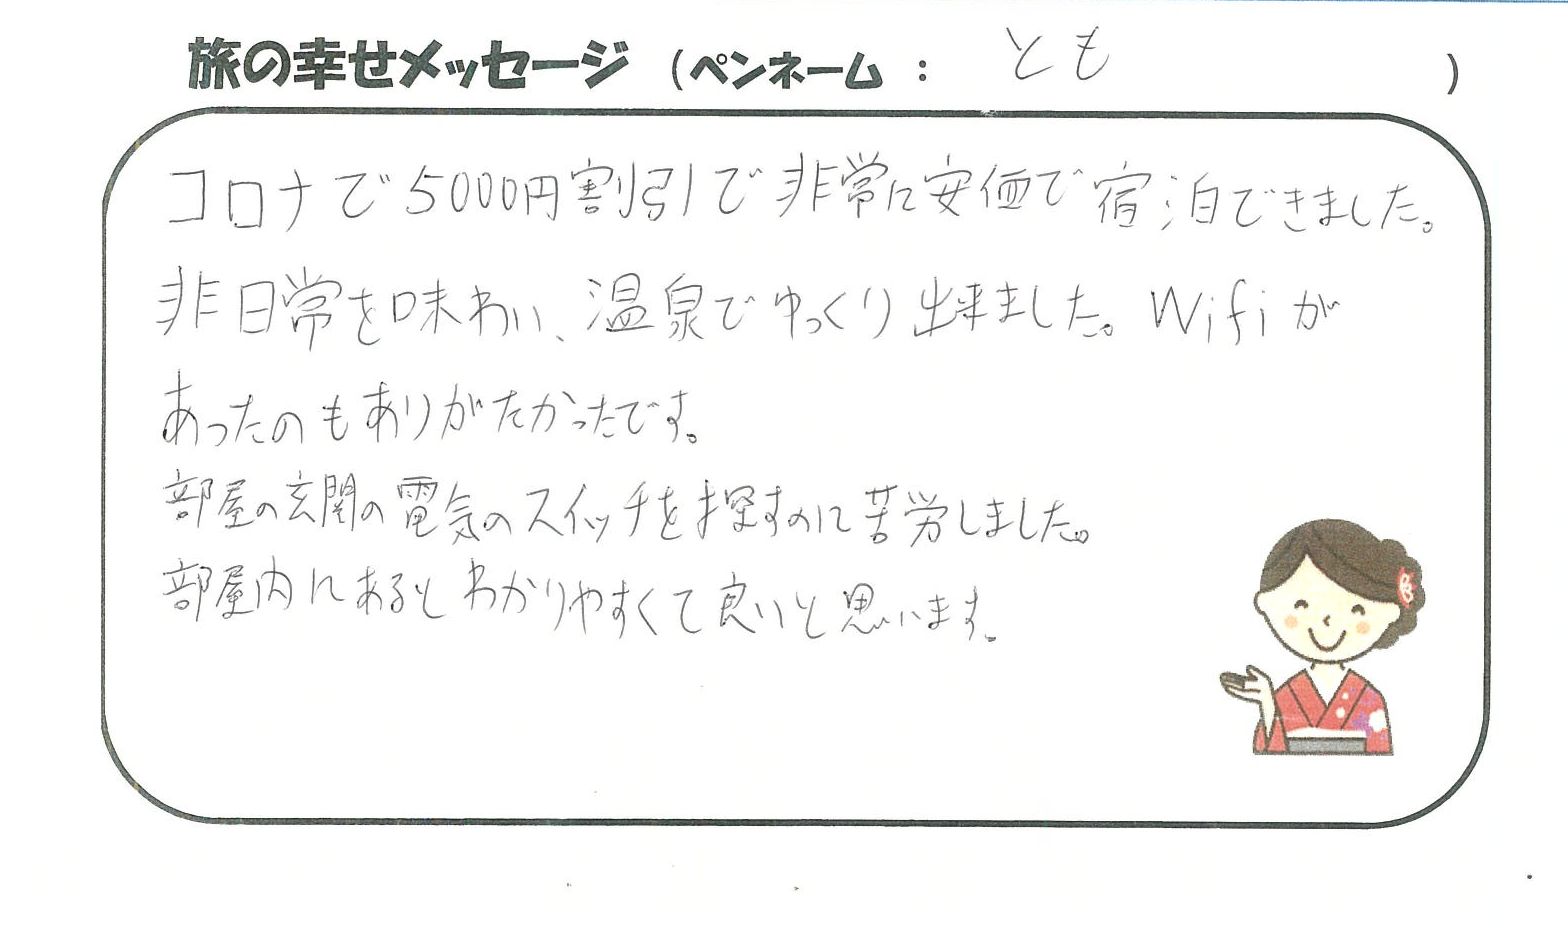 旅の幸せメッセージ (ペンネーム : とも )
コロナで5000円割引で非常に安価で宿泊できました。
非日常を味わい、温泉でゆっくり出来ました。Wifiが
あったのもありがたかったです。
部屋の玄関の電気のスイッチを探すのに苦労しました。
部屋内にあるとわかりやすくて良いと思います。